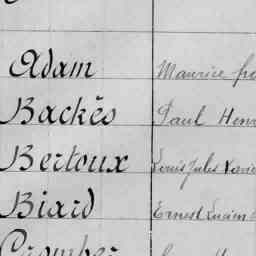 Adam Maurice
Backès Paul Henri
Bertoux Louis Jules Xavier
Biard Ernest Lucien